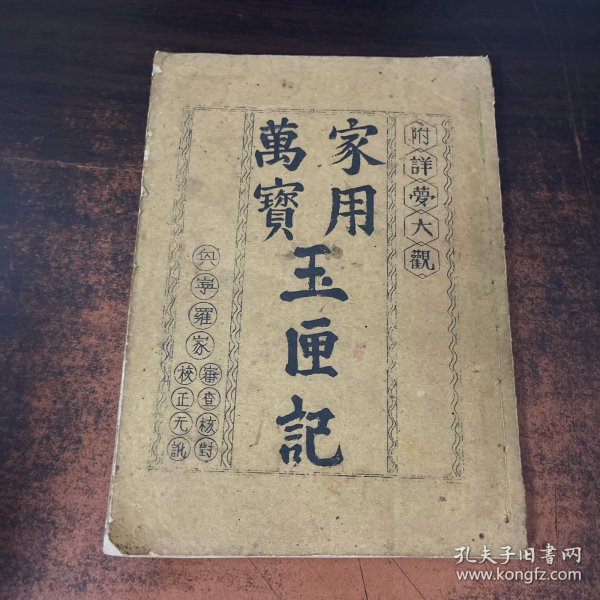 附詳夢大觀
家用
萬寶
玉匣記
寧羅家
審查核對
校正无訛
孔夫子旧書网
www.kongfz.com